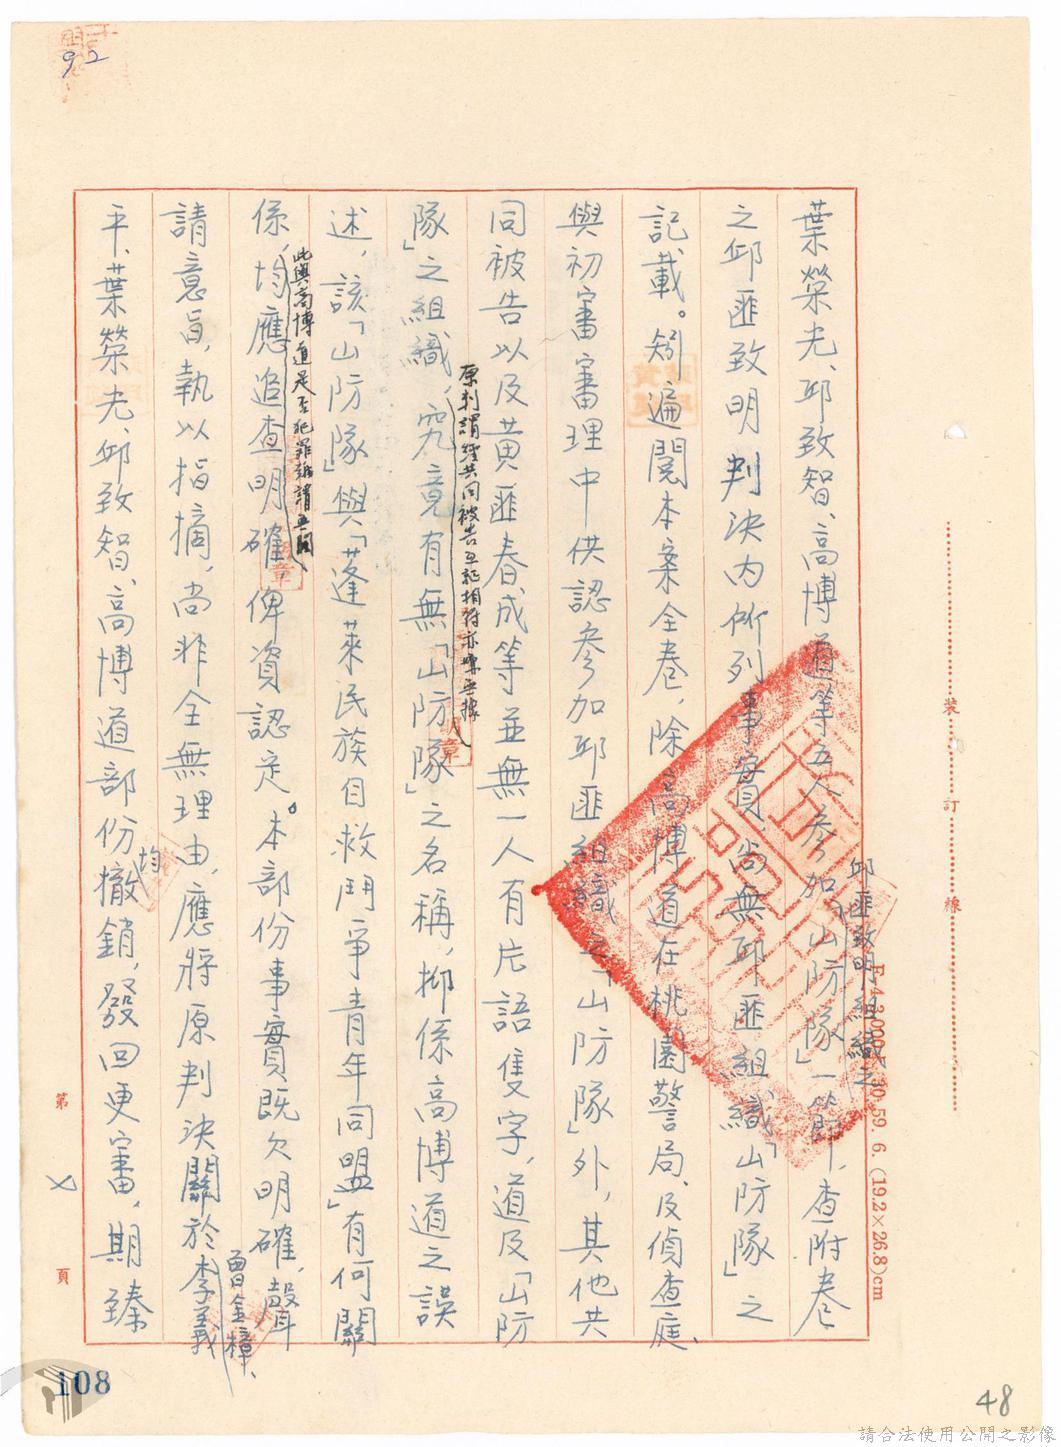 92
葉榮光、邱致智、高博道等五人參加邱匪致明組織之「山防隊」一節，查附卷
之邱匪致明判決內所列事實，尚無邱匪組織「山防隊」之
記載。矧遍閱本案全卷，除高博道在桃園警局、及偵查庭、
與初審審理中供認參加邱匪組織之「山防隊」外，其他共
同被告以及黃匪春成等並無一人有片語隻字，道及「山防
隊」之組織，原判謂經共同被告互証相符亦嫌無據，究竟有無「山防隊」之名稱，抑係高博道之誤
述，該「山防隊」與「蓬萊民族自救鬥爭青年同盟」有何關
係，此與高博道是否犯罪頗有關，均應追查明確俾資認定。本部份事實既欠明確，聲
請意旨，執以指摘，尚非全無理由，應將原判決關於李義
平、曾金樟、葉榮光、邱致智、高博道部份均撤銷，發回更審，期臻
裝 訂 線
F 42,000 30. 59. 6. (19.2×26.8)cm
第 七 頁
108
48
請合法使用公開之影像